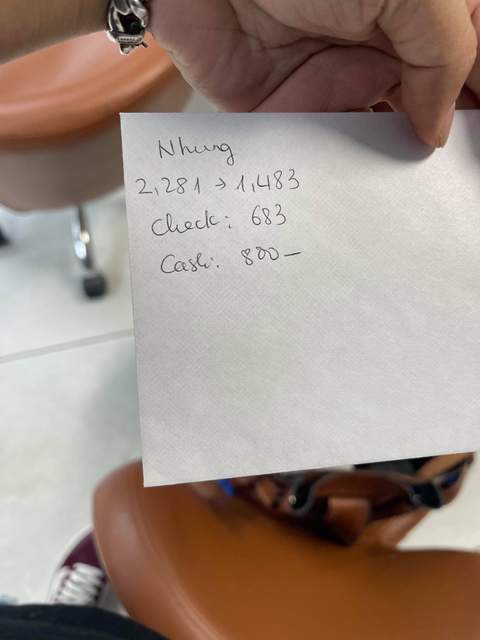 Nhung
2,281 → 1,483
Check: 683
Cash: 800 —